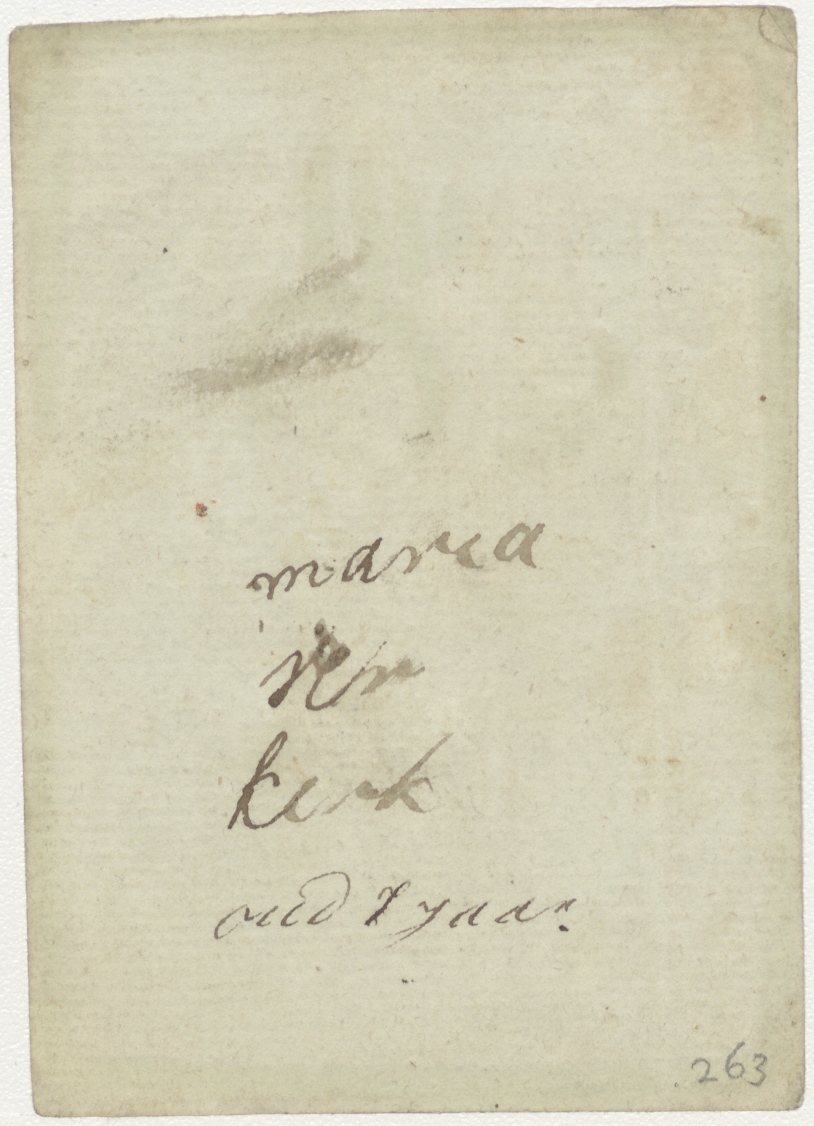 maria
ver
kerk
oud 8 yaar
263